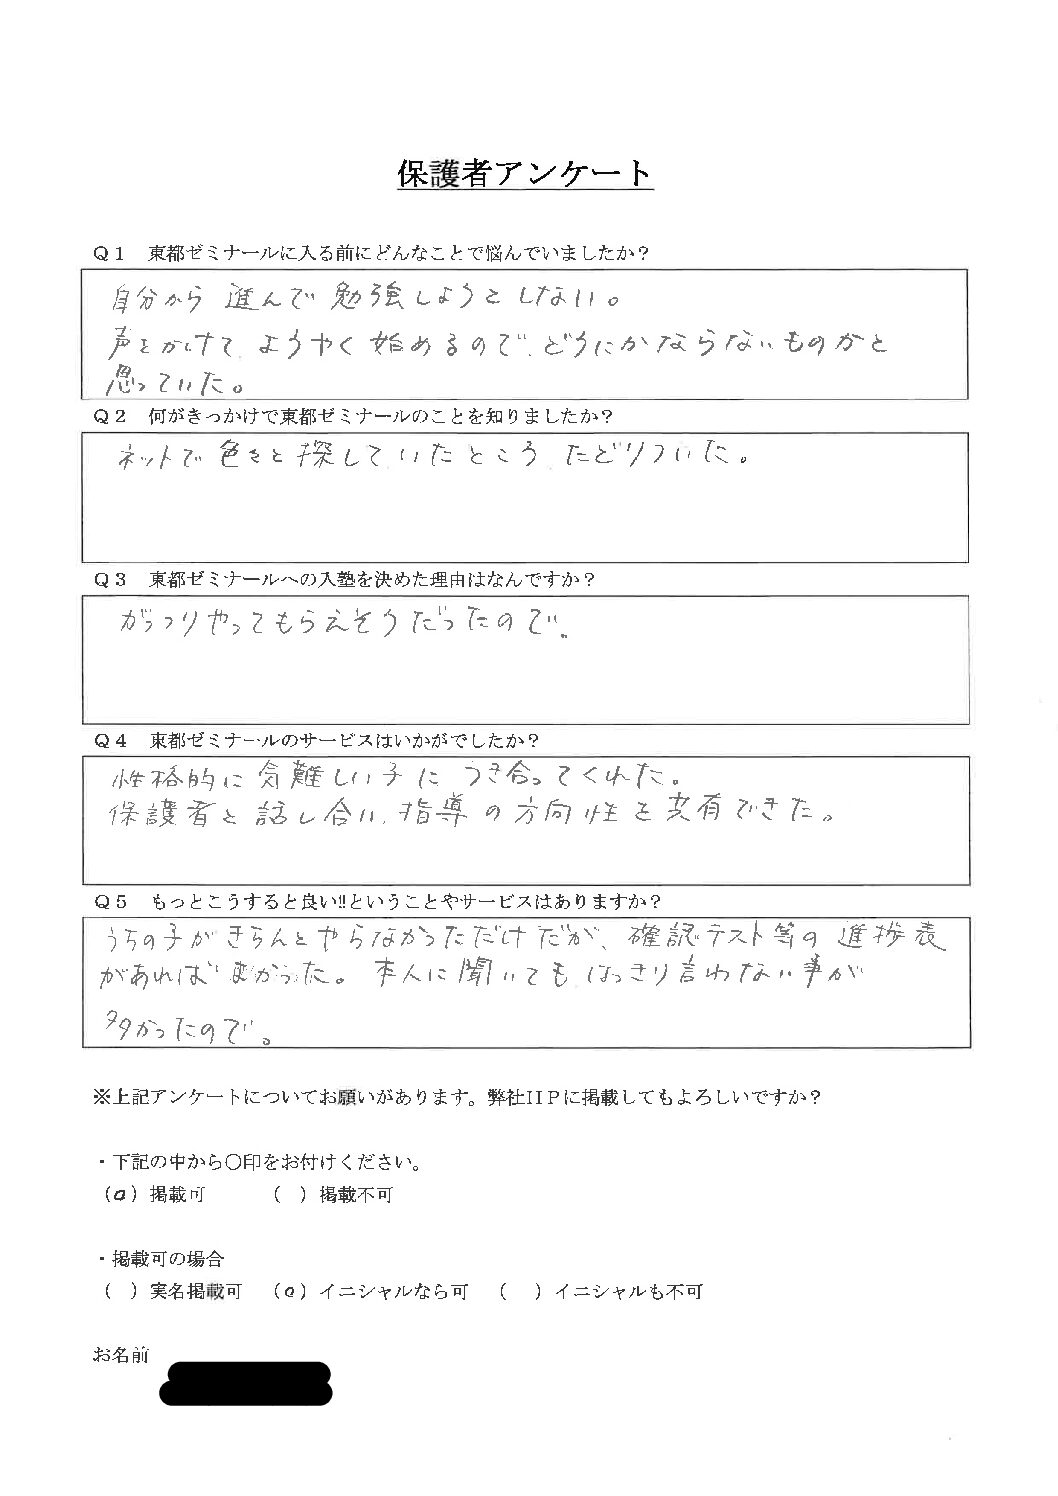 保護者アンケート
Q1 東都ゼミナールに入る前にどんなことで悩んでいましたか?
自分から進んで勉強しようとしない。
声をかけて、ようやく始めるので、どうにかならないものかと
思っていた。
Q2 何がきっかけで東都ゼミナールのことを知りましたか?
ネットで色々と探していたところ、たどりついた。
Q3 東都ゼミナールへの入塾を決めた理由はなんですか?
がっつりやってもらえそうだったので。
Q4 東都ゼミナールのサービスはいかがでしたか?
性格的に気難しい子につき合ってくれた。
保護者と話し合い、指導の方向性を共有できた。
Q5 もっとこうすると良い!!ということやサービスはありますか?
うちの子がきちんとやらなかっただけだが、確認テスト等の進捗表
があればよかった。本人に聞いても、はっきり言わない事が
多かったので。
※上記アンケートについてお願いがあります。弊社HPに掲載してもよろしいですか?
・下記の中から〇印をお付けください。
(o)掲載可 ( )掲載不可
・掲載可の場合
( )実名掲載可 (o)イニシャルなら可 ( )イニシャルも不可
お名前